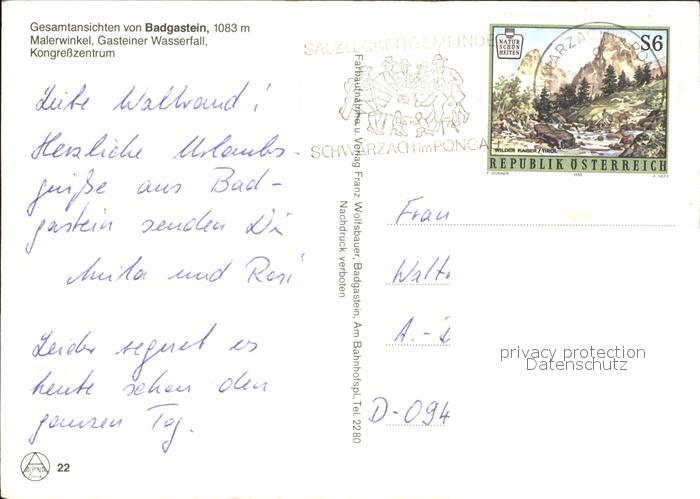 Gesamtansichten von Badgastein, 1083 m
Malerwinkel, Gasteiner Wasserfall,
Kongreßzentrum
Liebe Waltraud!
Herzliche Urlaubs-
grüße aus Bad-
gastein senden Dir
Anita und Rosi
Leider regnet es
heute schon den
ganzen Tag.
ALPINA
22
Farbaufnahme u. Verlag Franz Wolfsbauer, Badgastein, Am Bahnhofspl., Tel. 2280
Nachdruck verboten
SALZLECKERGEMEINDE
SCHWARZACH im PONGA
NATUR
SCHÖN
HEITEN
S6
WILDER KAISER / TIROL
REPUBLIK ÖSTERREICH
Frau
Walt
A.-
D-094
privacy protection
Datenschutz